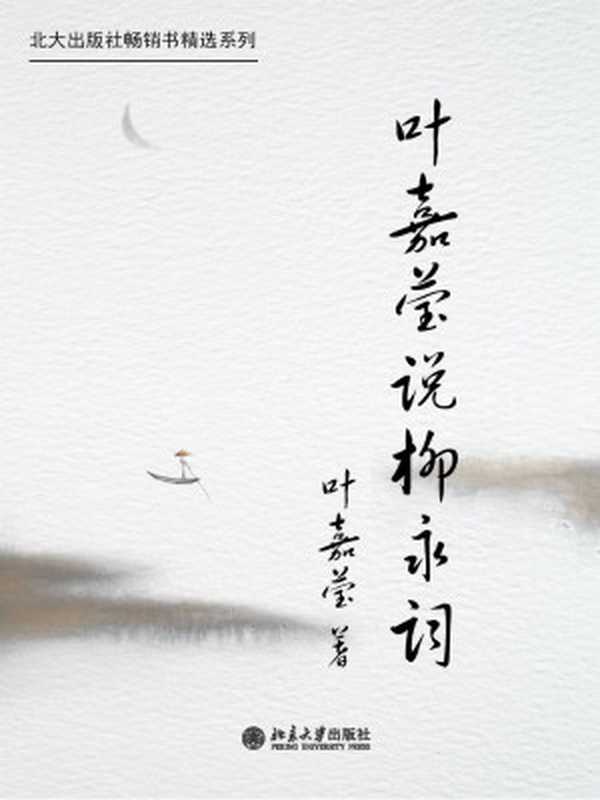 北大出版社畅销书精选系列
叶嘉莹说柳永词
叶嘉莹 著
北京大学出版社
PEKING UNIVERSITY PRESS